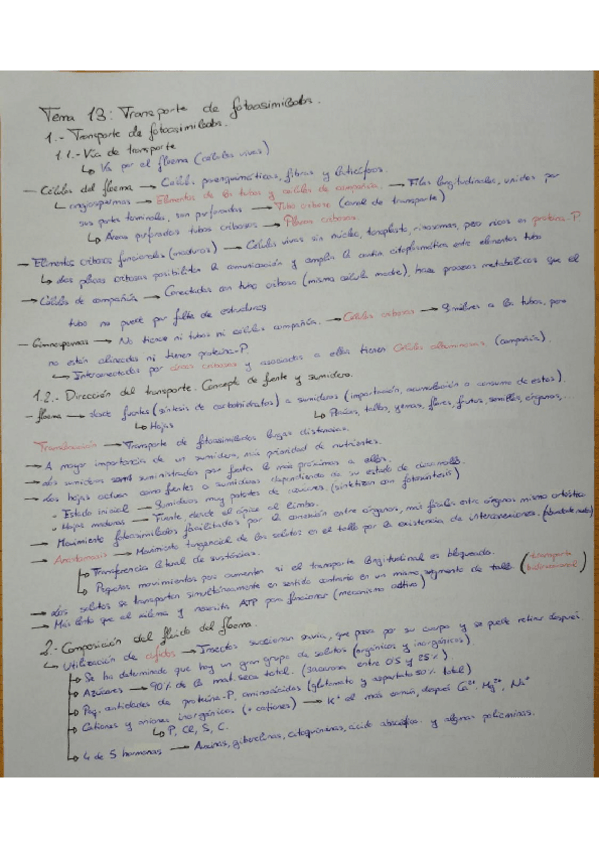 Tema 13: Transporte de fotoasimilados.
1.- Transporte de fotoasimilados.
1.1.- Vía de transporte
↳ Va por el floema (células vivas)
- Células del floema → Células parenquimáticas, fibras y laticíferos.
↳ angiospermas → Elementos de los tubos y células de compañía. → Filas longitudinales, unidas por
sus partes terminales, son perforadas → Tubo criboso (canal de transporte)
↳ Áreas perforadas tubos cribosos → Placas cribosas.
- Elementos cribosos funcionales (maduros) → Células vivas sin núcleo, tonoplasto, ribosomas, pero ricas en proteína-P.
↳ Las placas cribosas posibilitan la comunicación y amplia la citoplasmática entre elementos tubo
→ Células de compañía → Conectadas con tubo criboso (misma célula madre), hace procesos metabólicos que el
tubo no puede por falta de estructuras
- Gimnospermas → No tienen ni tubos ni células compañía. → Células cribosas → Similares a los tubos, pero
no están alineadas ni tienen proteína-P.
↳ Interconectadas por áreas cribosas y asociadas a ellas tienen Células albuminosas (compañía).
1.2.- Dirección del transporte. Concepto de fuente y sumidero.
- floema → desde fuentes (síntesis de carbohidratos) a sumideros (importación, acumulación o consumo de estos).
↳ Hojas
↳ Raíces, tallos, yemas, flores, frutos, semillas, órganos,...
Translocación → Transporte de fotoasimilados largas distancias.
→ A mayor importancia de un sumidero, más prioridad de nutrientes.
→ Los sumideros son suministrados por fuentes lo más próximas a ellos.
→ Las hojas actúan como fuentes o sumideros dependiendo de su estado de desarrollo.
· Estado inicial → Sumideros muy potentes de azúcares. (sintetizan con fotosíntesis)
· Hojas maduras → Fuente desde el ápice al limbo.
→ Movimiento fotoasimilados facilitados por la conexión entre órganos, más fáciles entre órganos mismo ortóstico
→ Anastomosis → Movimiento tangencial de los solutos en el tallo por la existencia de interconexiones.
↳ Transferencia lateral de sustancias.
↳ Pequeños movimientos para aumentar si el transporte longitudinal es bloqueado.
→ Los solutos se transportan simultáneamente en sentido contrario en un mismo segmento de tallo (transporte bidireccional)
→ Más lento que el xilema y necesita ATP para funcionar (mecanismo activo)
2.- Composición del fluido del floema.
↳ Utilización de áfidos → Insectos succionan savia, que pasa por su cuerpo y se puede retirar después
↳ Se ha determinado que hay un gran grupo de solutos (orgánicos y inorgánicos).
↳ Azúcares → 90% de la mat. seca total. (Sacarosa entre 0'5 y 25%).
↳ Peq. cantidades de proteína-P, aminoácidos (glutamato y aspartato 50% total)
↳ Cationes y aniones inorgánicos (+ cationes) → K⁺ el más común, después Ca²⁺, Mg²⁺, Na⁺
↳ P, Cl, S, C.
↳ 4 de 5 hormonas → Auxinas, giberelinas, citoquininas, ácido abscísico y algunas poliaminas.